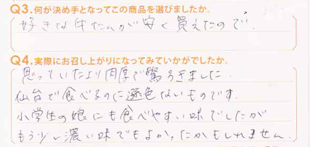 Q3.何が決め手となってこの商品を選びましたか。
好きな牛たんが安く買えたので.
Q4.実際にお召し上がりになってみていかがでしたか。
思っていたより肉厚で驚ろきました.
仙台で食べるのに遜色ないものです.
小学生の娘にも食べやすい味でしたが
もう少し濃い味でもよかったかもしれません.